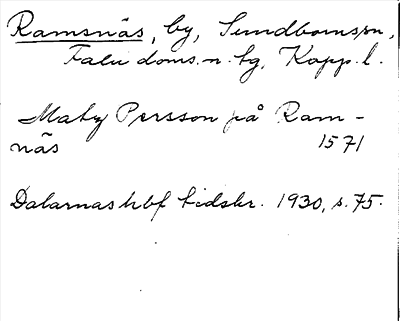 Ramsnäs, by, Sundbornssn,
Falu doms.n.tg, Kopp.l.
Maty Persson på Ram-
näs 1571
Dalarnas hbf tidskr. 1930, s. 75.